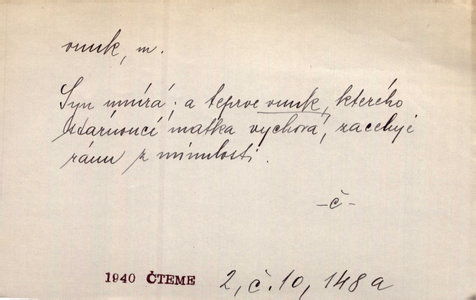 vnuk, m.
Syn umírá; a teprve vnuk, kterého
stárnoucí matka vychová, zaceluje
ránu z minulosti.
-č-
1940 ČTEME 2, č. 10, 148a